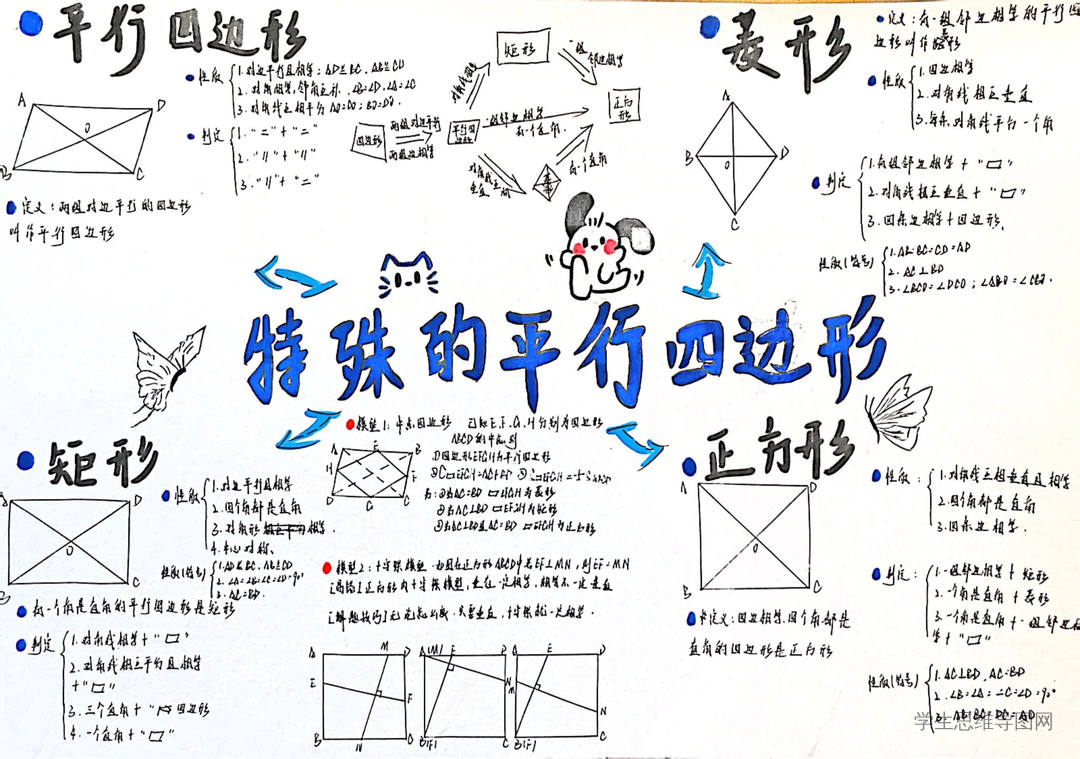 平行四边形
性质
1.对边平行且相等；AD≌BC，AB≌CD
2.对角相等，邻角互补，∠B=∠D，∠A=∠C
3.对角线互相平分 AO=CO；BO=DO.
判定
1."="+"="
2."//"+"//"
3."//"+"="
A
D
O
B
C
定义：两组对边平行的四边形
叫作平行四边形
四边形
两组对边平行
两组边相等
平行四边形
对角线相等
矩形
一组
邻边相等
一组邻边相等
有一个直角.
正方形
对角线互相
垂直
有一个直角
菱形
定义：有一组邻边相等的平行四
边形叫作菱形
性质
1.四边相等
2.对角线相互垂直
3.每条对角线平分一个角
A
B
O
D
C
判定
1.有组邻边相等+"▱"
2.对角线相互垂直+"▱"
3.四条边相等+四边形.
性质(符号)
1.AB=BC=CD=AD
2.AC⊥BD
特殊的平行四边形
矩形
A
D
O
C
性质
1.对边平行且相等
2.四个角都是直角
4.中心对称.
性质(符号)
3.AC=BD.
有一个角是直角的平行四边形是矩形
判定
1.对角线相等+"▱"
2.对角线相互平分且相等
+"▱"
3.三个直角+"▱四边形
4.一个直角+"▱"
模型1：中点四边形 已知E.F.G.H分别为四边形
ABCD的中点，则
①四边形EFGH为平行四边形
①若AC=BD ▱EFGH为菱形
②若AC⊥BD ▱EFGH为矩形
③若AC⊥BD且AC=BD ▱EFGH为正方形
A
E
B
H
F
D
G
C
模型2：十字架模型 如图在正方形ABCD中若EF⊥MN，则EF=MN
正方形内十字架模型，垂直一定相等，相等不一定垂直
[解题技巧]无论怎么变，只要垂直，十字架就一定相等.
A
M
D
E
F
B
N
C
A(M)
E
D
N
B(F)
C
A
E
D
M
N
B(F)
C
正方形
A
D
O
B
C
定义：四边相等，四个角都是
直角的四边形是正方形
性质：
1.对角线互相垂直且相等
2.四个角都是直角
3.四条边相等.
判定：
1.一组邻边相等+矩形
2.一个角是直角+菱形
3.一个角是直角+一组邻边相
等+"▱"
性质(符号)
1.AC⊥BD，AC=BD
2.∠B=∠A=∠C=∠D=90°
3.AB=BC=DC=AD
学生思维导图网